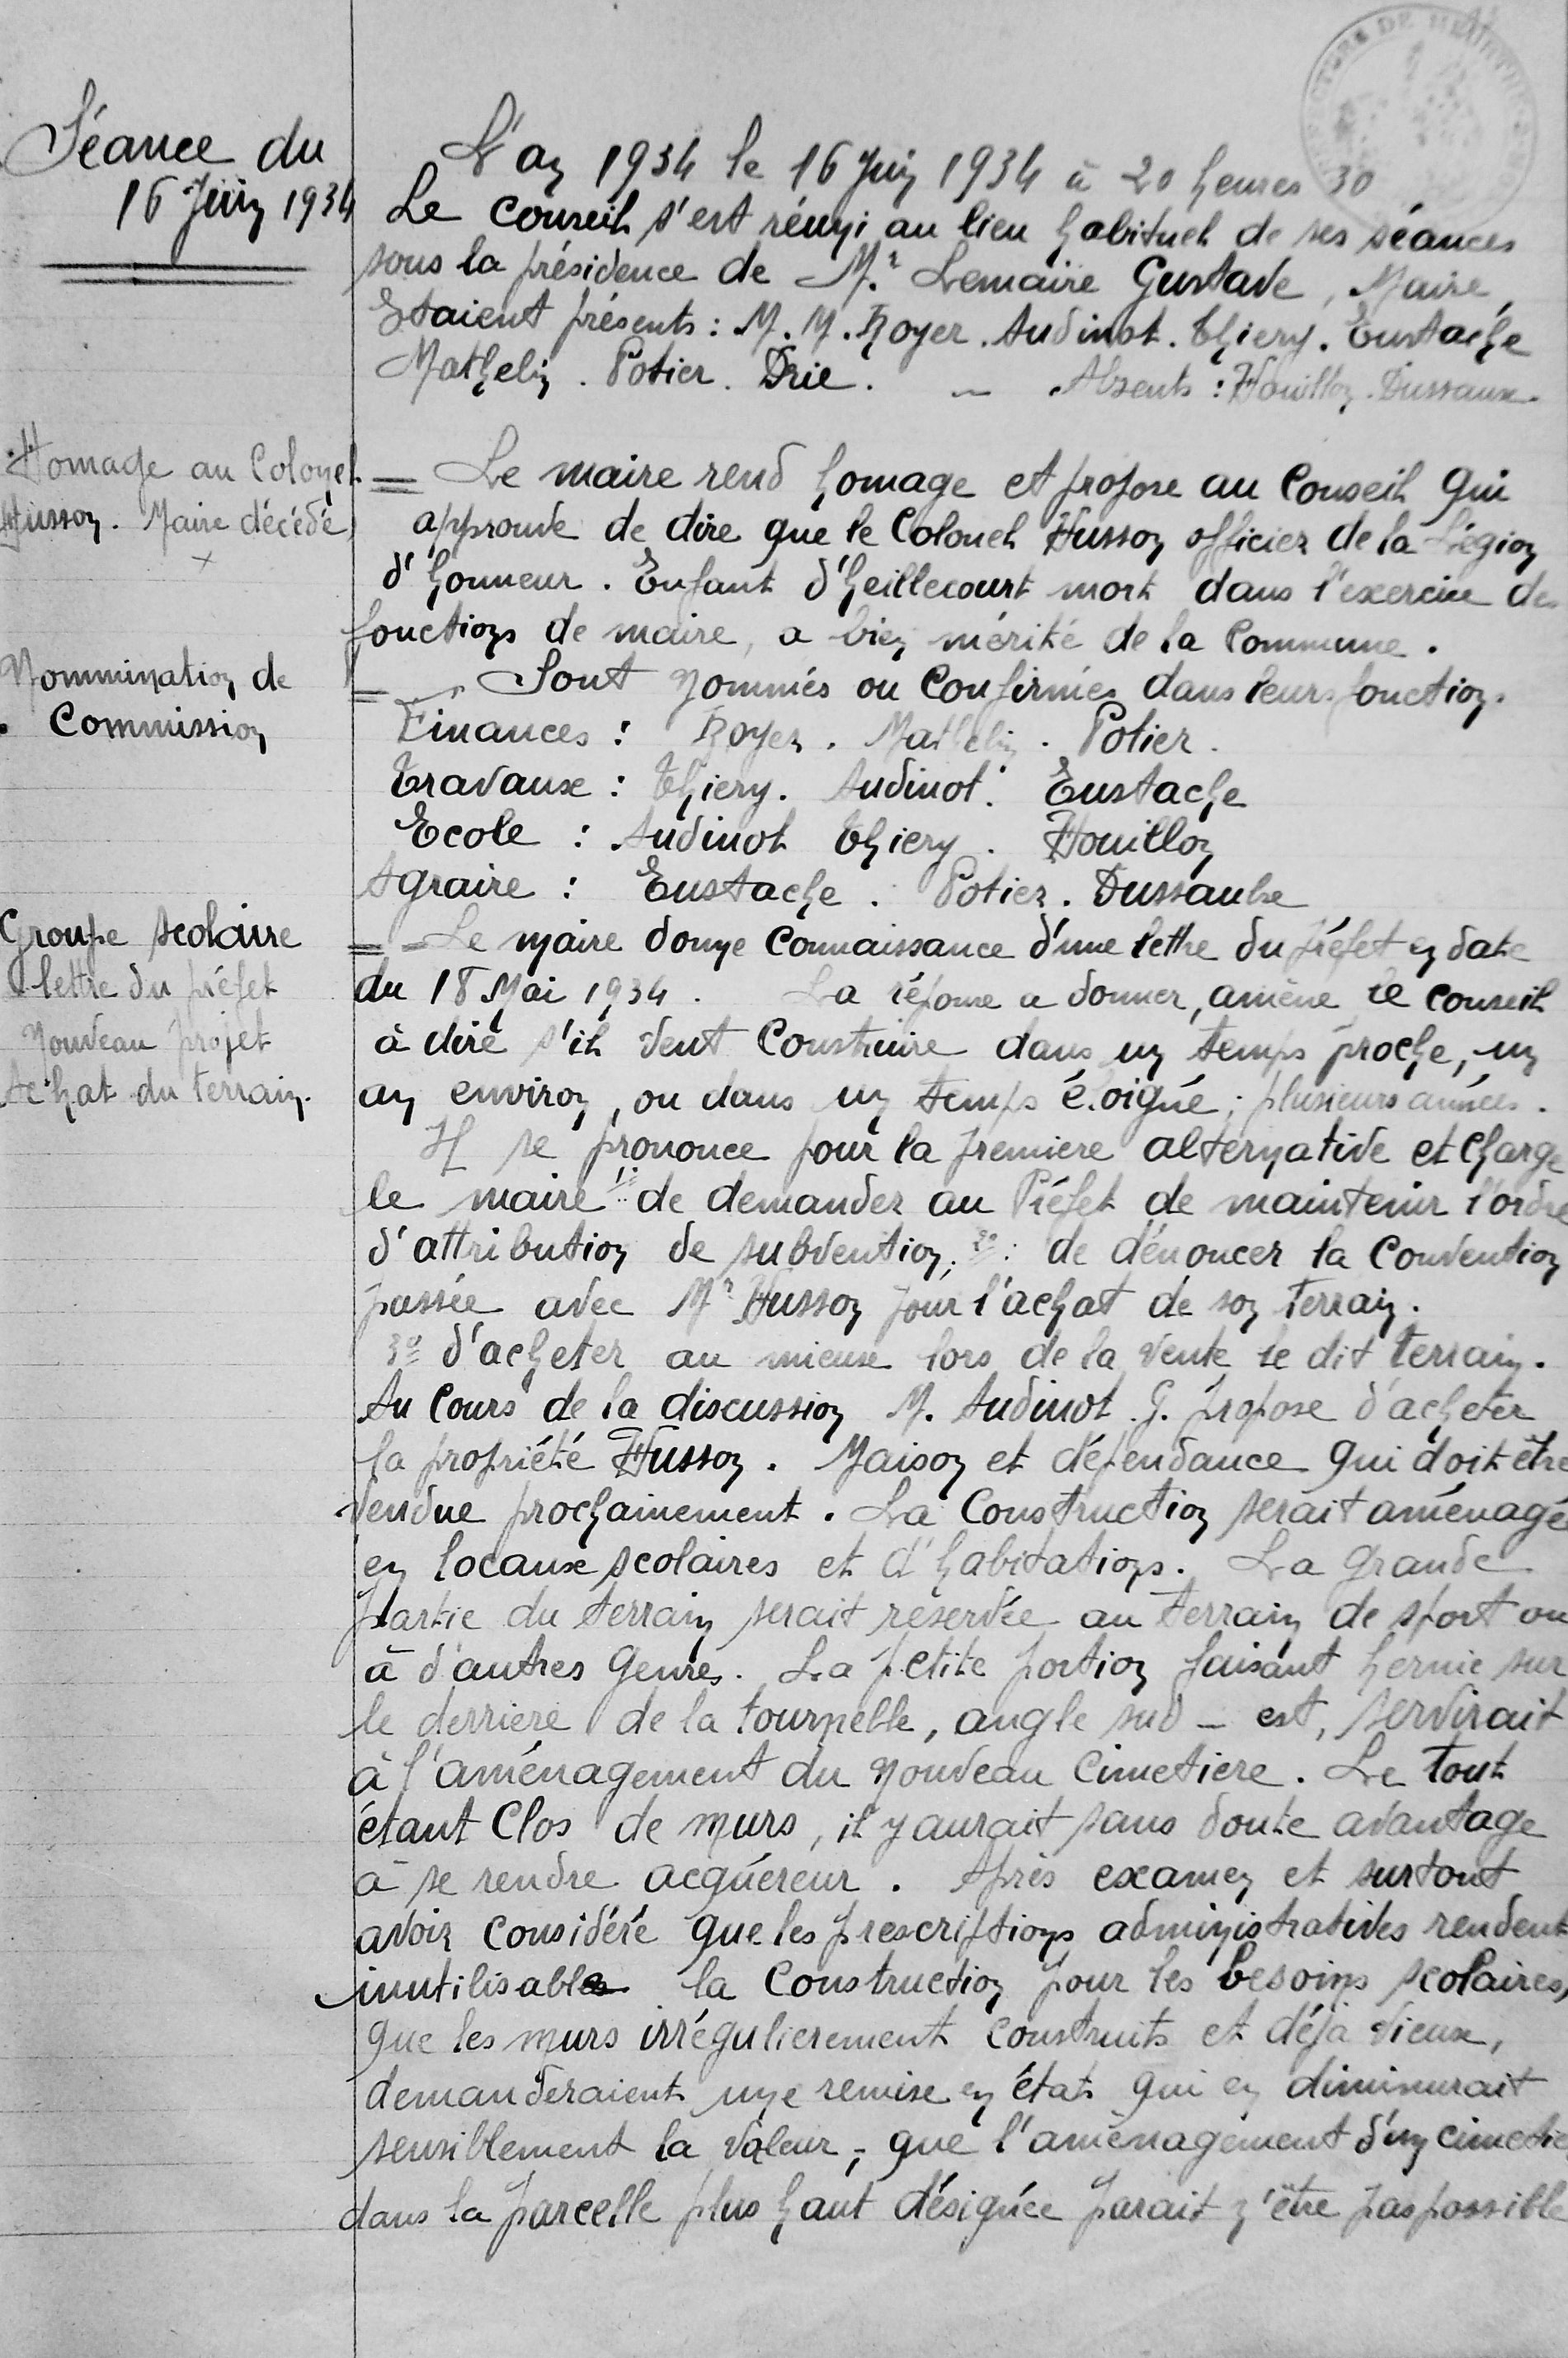 Séance du
16 Juin 1934
L'an 1934 le 16 Juin 1934 à 20 heures 30
Le Conseil s'est réuni au lieu habituel de ses séances
sous la présidence de Mr Lemaire Gustave, Maire,
Etaient présents : M. M. Royer. Audinot. Thiery. Eustache
Mathelin. Potier. Drie. — Absents : Houillon. Dussaux.
Homage au Colonel
Husson. Maire décédé
= Le maire rend homage et propose au Conseil qui
approuve de dire que le Colonel Husson officier de la Légion
d'honneur. Enfant d'heillecourt mort dans l'exercice des
fonctions de maire, a bien mérité de la Commune.
Nommination de
Commission
= Sont nommés ou Confirmés dans leurs fonction.
Finances : Royer. Mathelin. Potier.
Travaux : Thiery. Audinot. Eustache
Ecole : Audinot Thiery. Houillon
Agraire : Eustache. Potier. Dussaulx
Groupe scolaire
lettre du préfet
Nouveau projet
Achat du terrain.
= = Le maire donne Connaissance d'une lettre du Préfet en date
du 18 Mai 1934. La réponse a donner, amène le Conseil
à dire s'il veut Construire dans un temps proche, un
an environ, ou dans un temps éloigné; plusieurs années.
Il se prononce pour la premiere alternative et Charge
le maire 1º de demander au Préfet de maintenir l'ordre
d'attribution de subvention; 2º: de dénoncer la Convention
passée avec Mr Husson pour l'achat de son terrain.
3º d'acheter au mieux lors de la vente le dit terrain.
Au Cours de la discussion M. Audinot G. propose d'acheter
la propriété Husson. Maison et dépendance qui doit être
vendue prochainement. La Construction serait aménagé
en locaux scolaires et d'habitations. La grande
partie du terrain serait réservée au terrain de sport ou
à d'autres Genres. La petite portion faisant hernie sur
le derriere de la tournelle, angle sud - est, servirait
à l'aménagement du nouveau Cimetiere. Le tout
étant Clos de murs, il y aurait sans doute avantage
à se rendre acquéreur. Après examen et surtout
avoir Considéré que les prescriptions administratives rendent
inutilisables la Construction pour les besoins scolaires,
que les murs irrégulierement construits et déjà vieux,
demanderaient une remise en état qui en diminurait
sensiblement la valeur; que l'aménagement d'un cimetie
dans la parcelle plus haut désignée parait n'être pas possible